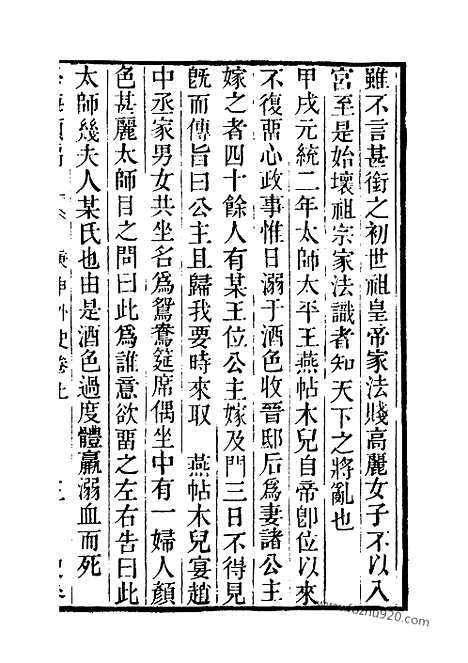 雖不言甚銜之初世祖皇帝家法賤高麗女子不以入
宮至是始壞祖宗家法識者知天下之將亂也
甲戌元統二年太師太平王燕帖木兒自帝卽位以來
不復畱心政事惟日溺于酒色收晉邸后爲妻諸公主
嫁之者四十餘人有某王位公主嫁及門三日不得見
旣而傳旨曰公主且歸我要時來取　燕帖木兒宴趙
中丞家男女共坐名爲鴛鴦筵席偶坐中有一婦人顏
色甚麗太師目之問曰此爲誰意欲畱之左右告曰此
太師幾夫人某氏也由是酒色過度體羸溺血而死
庚申外史卷上
www.fozhu920.com